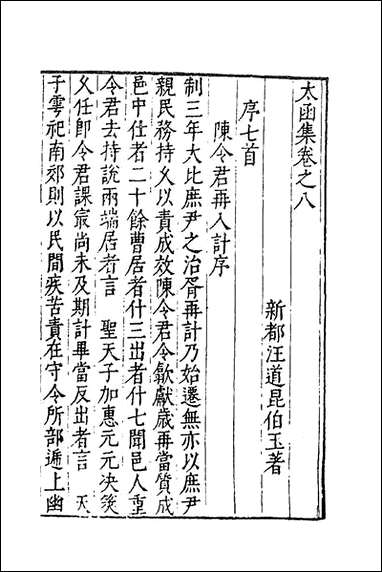 太函集卷之八
新都汪道昆伯玉著
序七首
陳令君再入計序
制三年大比庶尹之治胥再計乃始遷無亦以庶尹
親民務持久以責成效陳令君令歙獻歲再當質成
邑中仕者二十餘曹居者什三出者什七聞邑人重
令君去持說兩端居者言　聖天子加惠元元決筴
久任即令君課最尚未及期計畢當反出者言　天
子雩祀南郊則以民間疾苦責在守令所部遞上幽